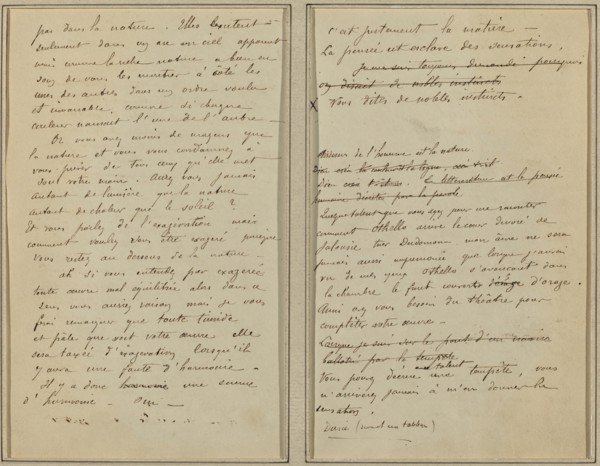 pas dans la nature. Elles existent
seulement dans un arc en ciel apparent
mais comme la riche nature a bien eu
soin de vous les montrer à côté les
unes des autres dans un ordre voulu
et immuable, comme si chaque
couleur naissait l'une de l'autre
Or vous avez moins de moyens que
la nature et vous vous condamnez à
vous priver de tous ceux qu'elle met
sous votre main. Aurez vous jamais
autant de lumière que la nature
autant de chaleur que le soleil ?
Et vous parlez de l'exagération mais
comment voulez vous être exagéré puisque
vous restez au dessous de la nature.
ah si vous entendez par exagérée
toute œuvre mal équilibrée alors dans ce
sens vous aurez raison mais je vous
ferai remarquer que toute timide
et pâle que soit votre œuvre elle
sera taxée d'exagération lorsqu'il
y aura une faute d'harmonie.
Il y a donc harmonie une science
d'harmonie. Oui
c'est justement la matière
La pensée est esclave des sensations.
Je me suis toujours demandé pourquoi
on disait de nobles instincts
x Vous dites de nobles instincts.
Au dessus de l'homme est la nature.
La littérature est la pensée
humaine décrite par la parole
Quelque talent que vous ayez pour me raconter
comment Othello arrive le cœur dévoré de
jalousie tuer Desdemona mon âme ne sera
jamais aussi impressionnée que lorsque j'aurai
vu de mes yeux Othello s'avançant dans
la chambre le front couvert d'orage.
Aussi avez vous besoin du théâtre pour
compléter votre œuvre
Lorsque je suis sur le pont d'un navire
ballotté par la tempête
Vous pouvez décrire avec talent une tempête, vous
n'arriverez jamais à m'en donner la
sensation.